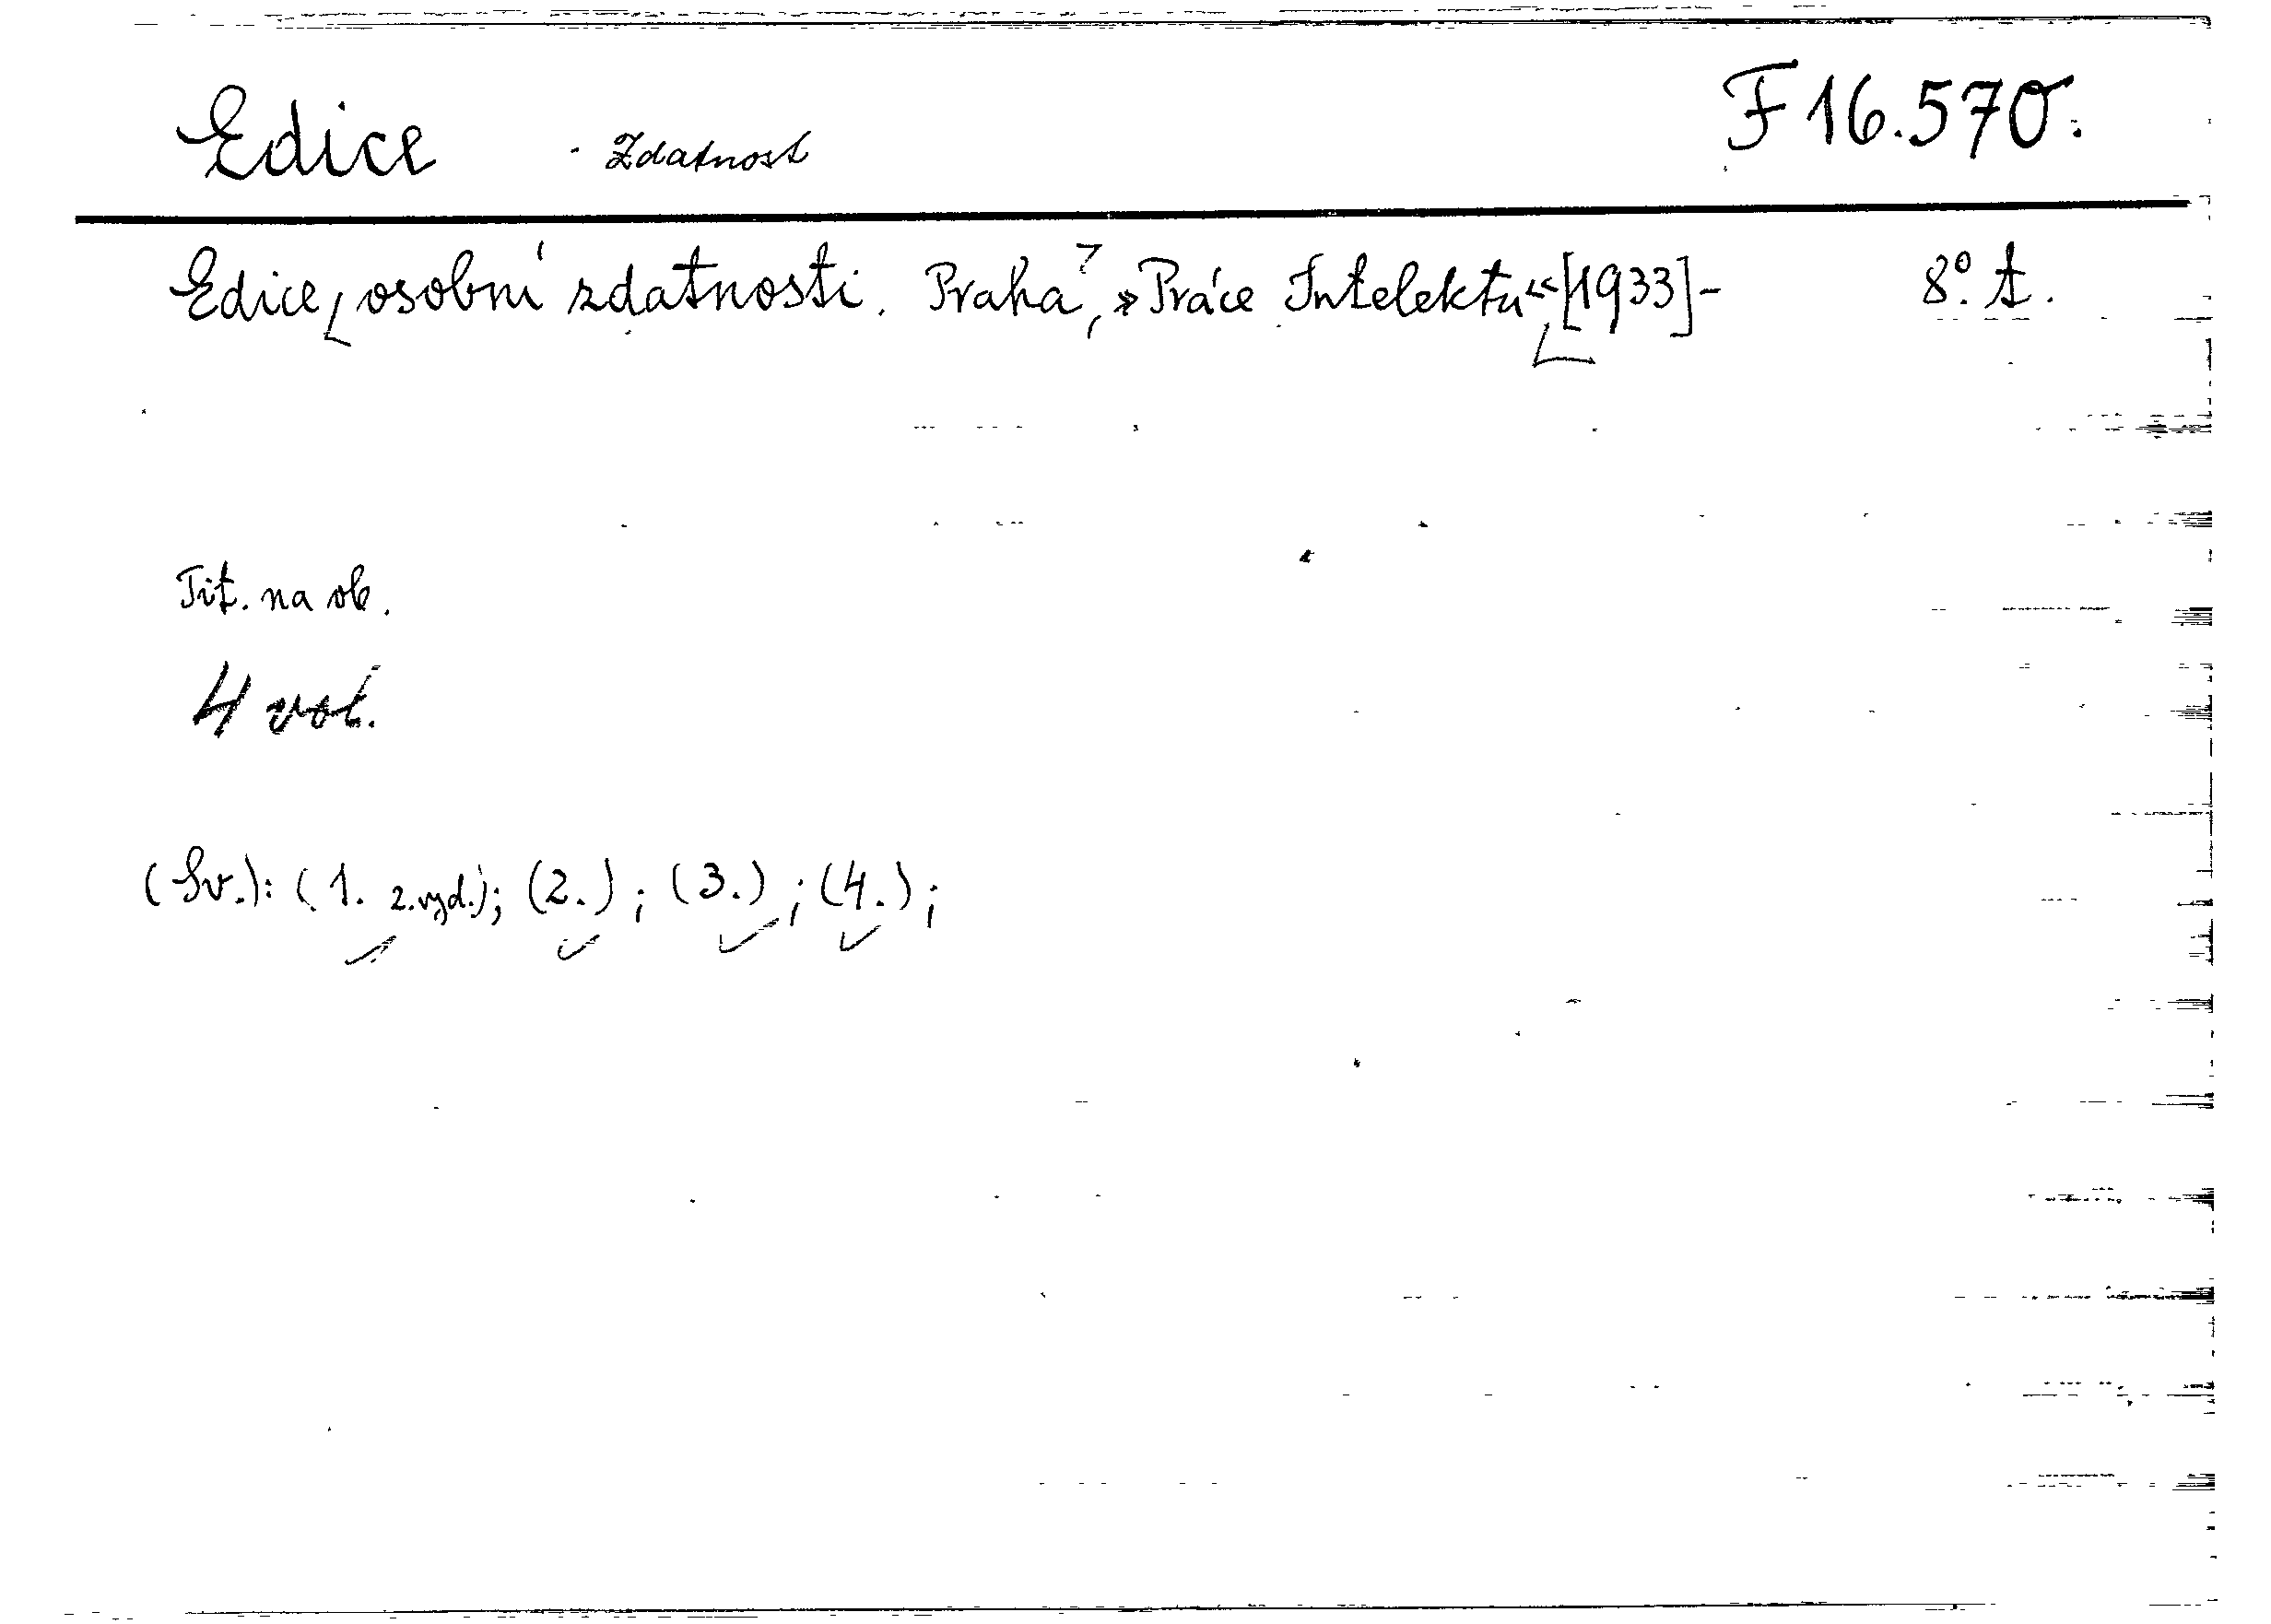 Edice - Zdatnost F 16.570.
Edice, osobní zdatnosti. Praha, »Práce Intelektu« [1933]- 8°. t.
Tit. na ob.
4 vol.
(Sv.): (1. 2.vyd.); (2.); (3.); (4.);